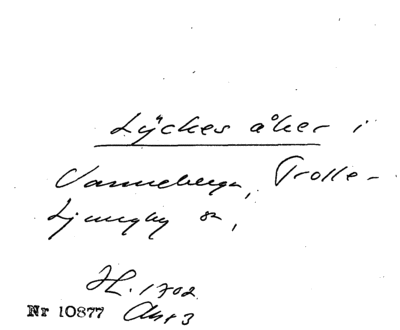 Lÿckes åker i
Vanneberga, Trolle-
Ljungby sn,
H. 1702
Nr 10877 Akt 3